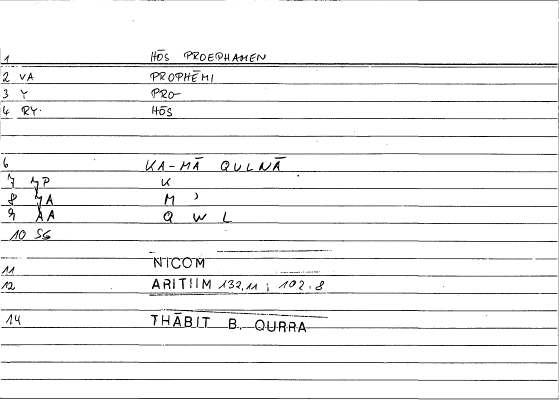 1 HŌS PROEPHAMEN
2 VA PROPHĒMI
3 Y PRO-
4 RY. HŌS
6 KA-MĀ QULNĀ
7 YP K
8 YA M ʾ
9 AA Q W L
10 SG
11 NICOM
12 ARITIIM 132,11 ; 102.8
14 THĀBIT B. QURRA